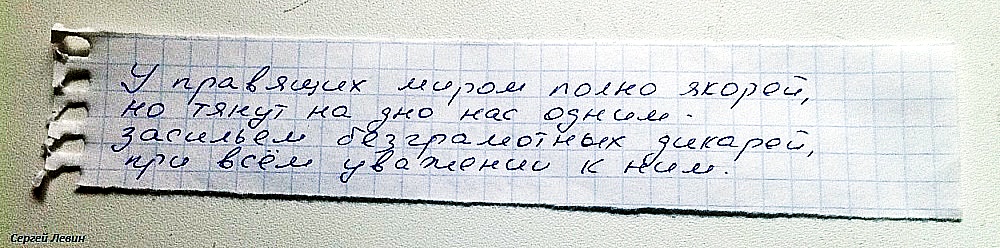 У правящих миром полно якорей,
но тянут на дно нас одним -
засильем безграмотных дикарей,
при всём уважении к ним.
Сергей Левин